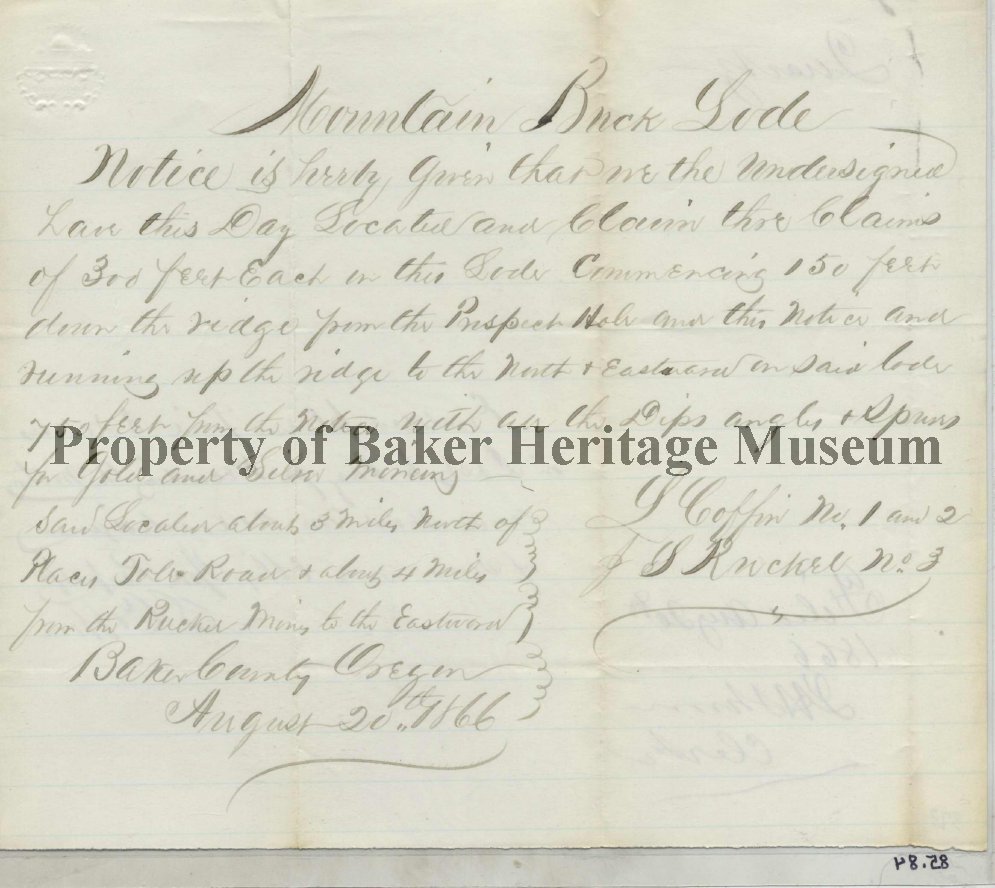 Mountain Buck Lode
Notice is herby Given that we the Undersigned
have this Day Located and Claim thre Claims
of 300 feet Each on this Lode Commencing 150 feet
down the ridge from the Prospect Hole and this Notice and
running up the ridge to the North & Eastward on said lode
750 feet from the Notice with all the Dips angles & Spurs
Property of Baker Heritage Museum
for Gold and Silver Mining
Said Location about 3 Miles North of
Places Tole Road & about 4 Miles
from the Rucker Mines to the Eastward
Baker County Oregon
August 20th 1866
L Coffin No. 1 and 2
J S Ruckel No 3
85.84